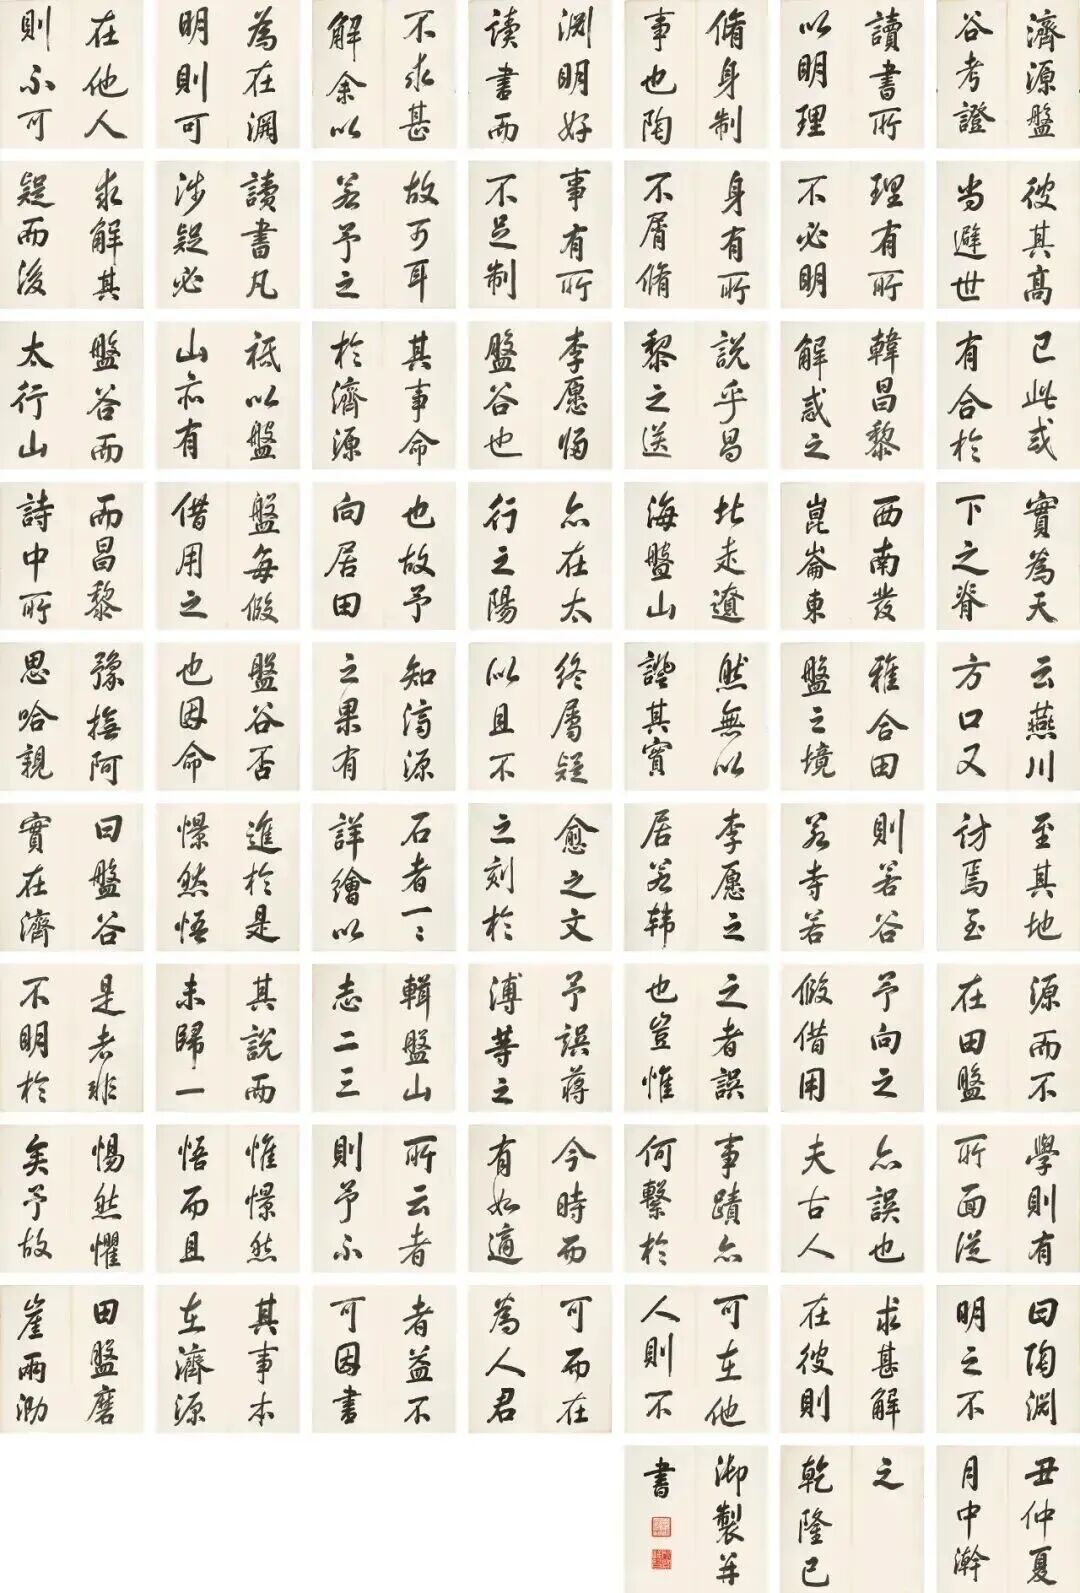 濟源盤
谷考證
讀書所
以明理
脩身制
事也陶
渊明好
读書而
不求甚
解余以
為在渊
明則可
在他人
則不可
彼其高
尚避世
理有所
不必明
身有所
不屑脩
事有所
不足制
故可耳
若予之
讀書凡
涉疑必
求解其
疑而後
已此或
有合於
韓昌黎
解惑之
說乎昌
黎之送
李愿歸
盤谷也
其事命
於濟源
祇以盤
山亦有
盤谷而
太行山
實為天
下之脊
西南發
崑崙東
北走遼
海盤山
亦在太
行之陽
也故予
向居田
盤每假
借用之
而昌黎
詩中所
云燕川
方口又
雅合田
盤之境
然無以
證其實
終屬疑
似且不
知濟源
之果有
盤谷否
也因命
豫撫阿
思哈親
至其地
訪焉至
則若谷
若寺若
李愿之
居若韩
愈之文
之刻於
石者一〻
詳繪以
進於是
憬然悟
曰盤谷
實在濟
源而不
在田盤
予向之
假借用
之者誤
也豈惟
予誤蒋
溥等之
輯盤山
志二三
其說而
未歸一
是者非
不明於
學則有
所面從
亦誤也
夫古人
事蹟亦
何繫於
今時而
有如適
所云者
則予不
惟憬然
悟而且
惕然懼
矣予故
曰陶渊
明之不
求甚解
在彼則
可在他
人則不
可而在
為人君
者益不
可因書
其事本
在濟源
田盤磨
崖兩泐
之
乾隆己
丑仲夏
月中澣
御製并
書